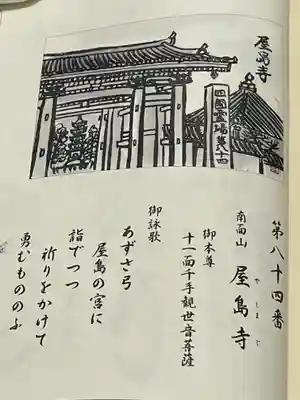 屋島寺
四國霊場第八十四
第八十四番
南面山 屋島寺
やしまじ
御本尊
十一面千手観世音菩薩
御詠歌
あずさ弓
屋島の宮に
詣でつつ
祈りをかけて
勇むもののふ